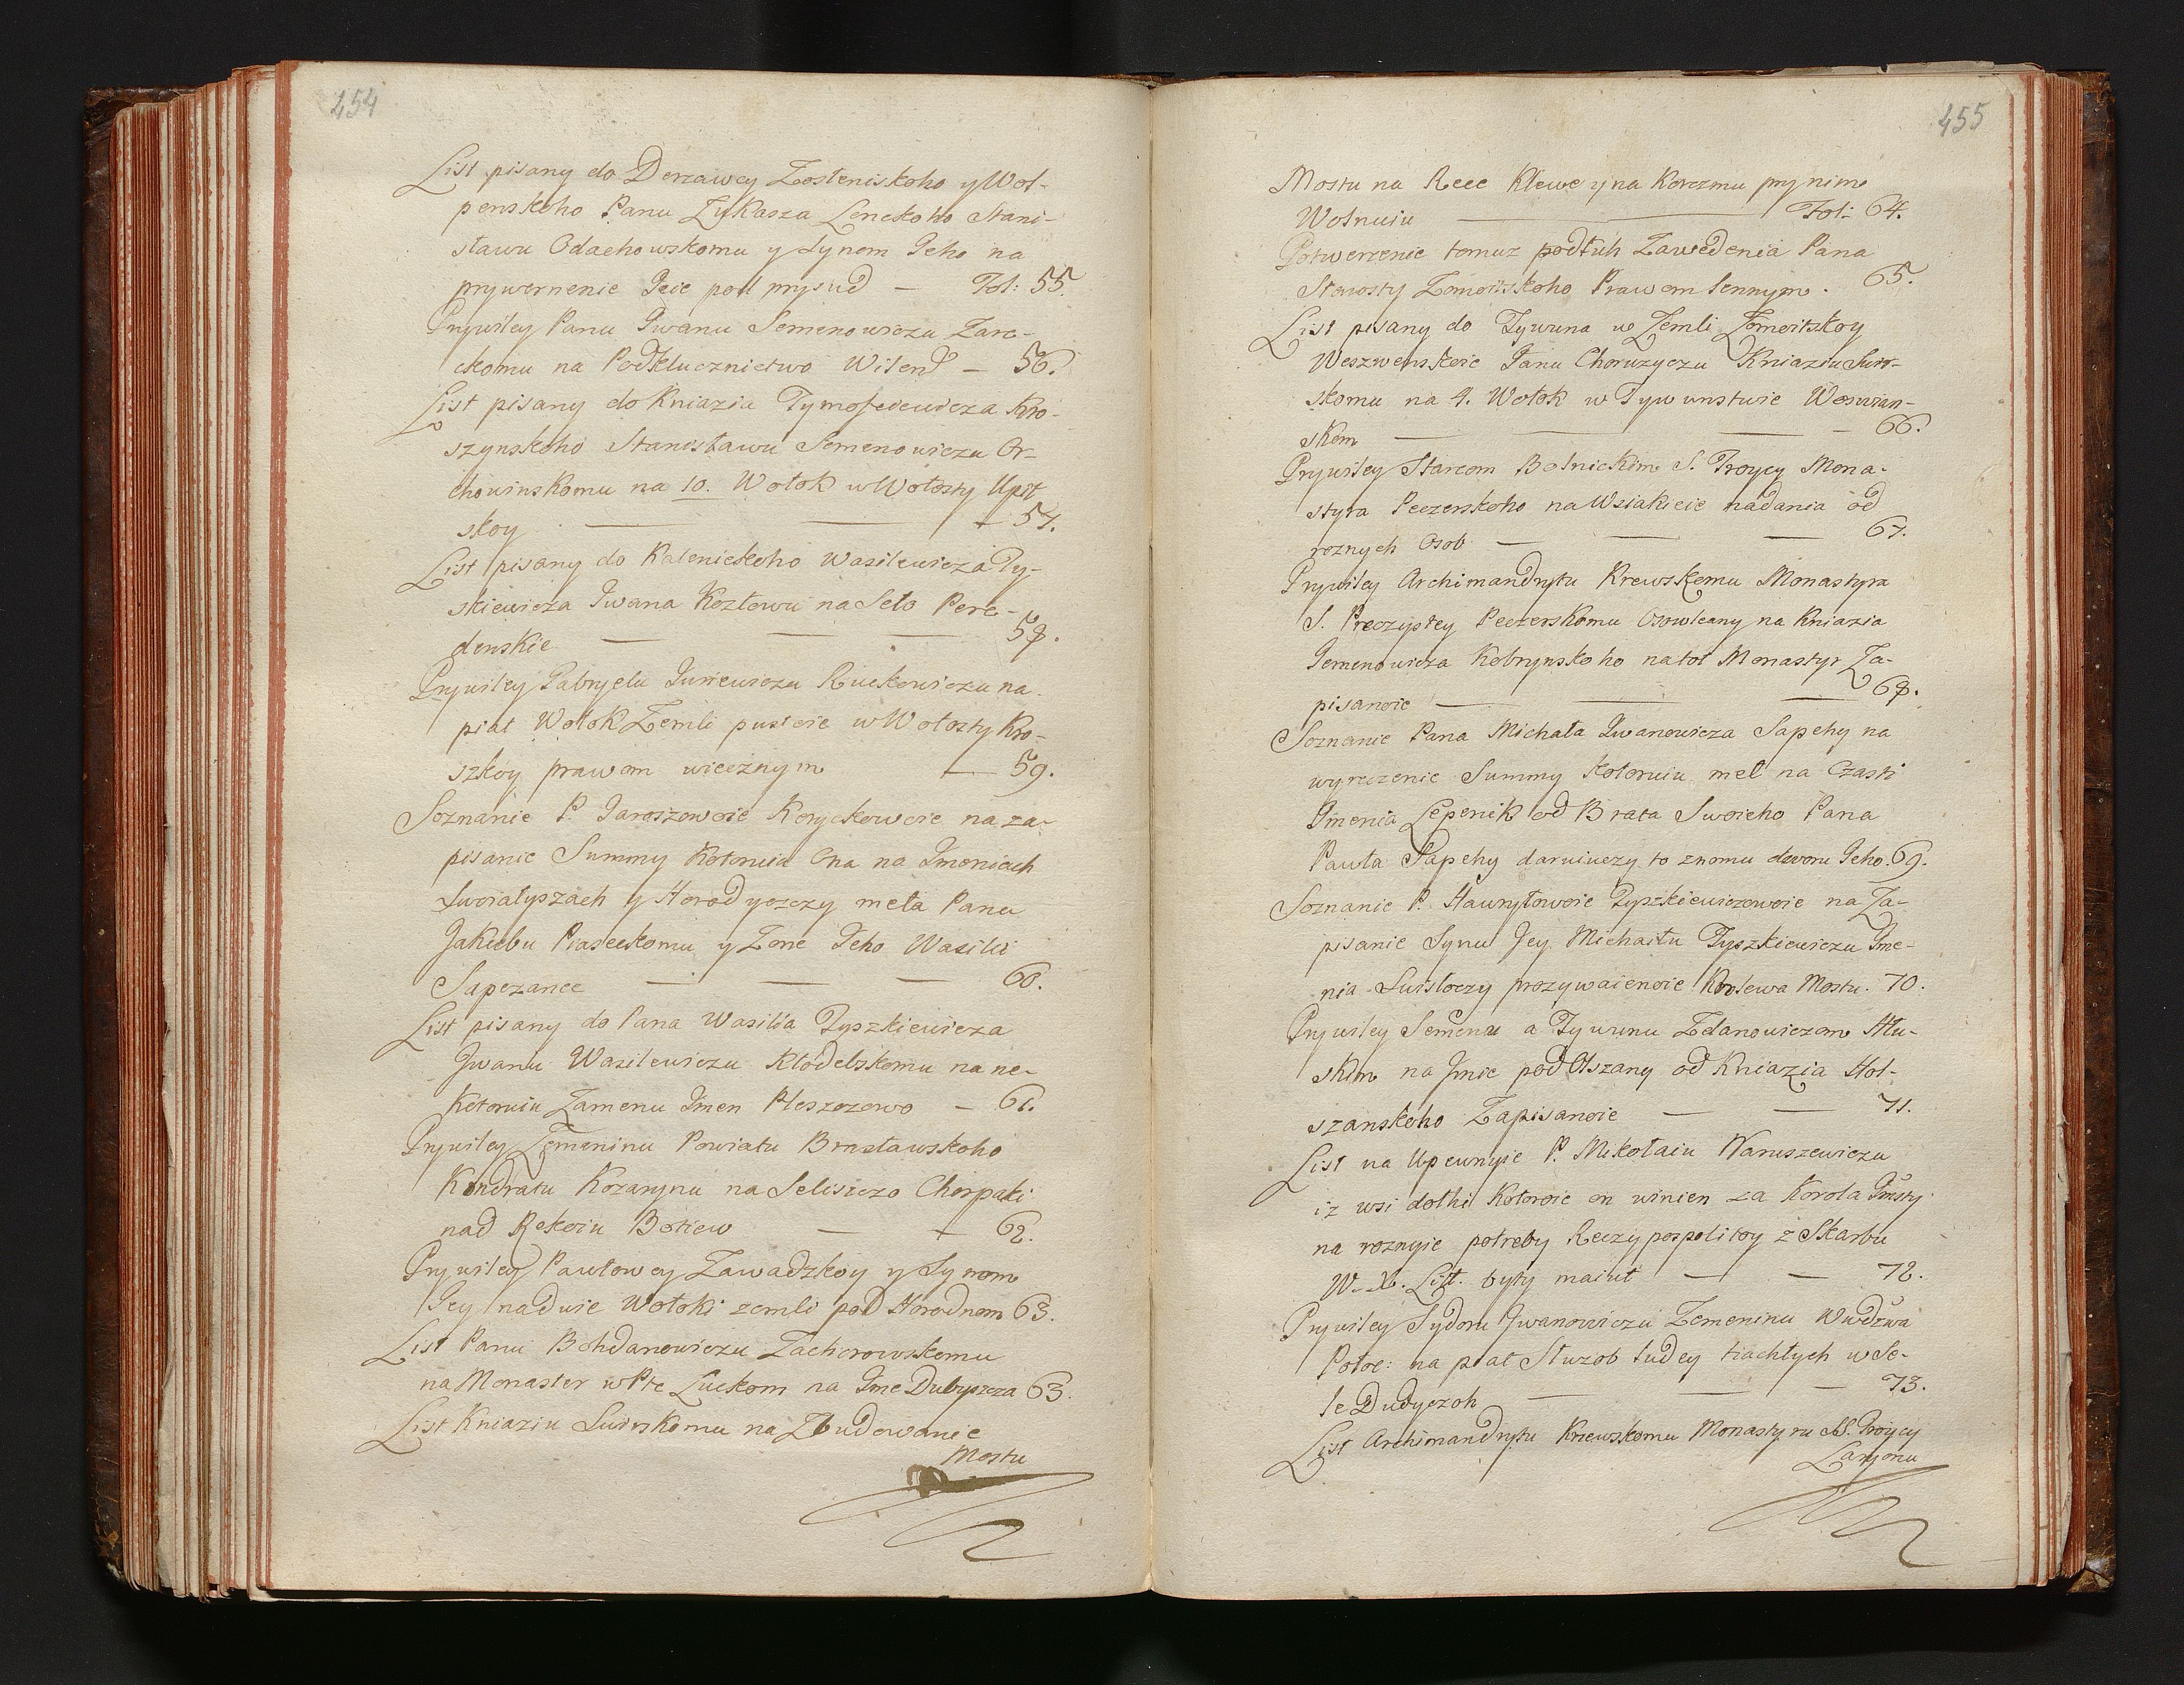 454
List pisany do Derzawcy Zosleniskoho y Wol-
penskoho Panu Łukasza Lenckoho Stani-
sławu Odachowskomu y Synom Jeho na
prywernenie Jeie pod prysud — Fol: 55.
Prywiley Panu Iwanu Semenowiczu Zare-
ckomu na Podklucznictwo Wilend — 56.
List pisany do Kniazia Tymofeiewicza Kro-
szynskoho Stanisławu Semenowiczu Or-
chowinskomu na 10. Wołok w Wołosty Upit
skoy — — 57.
List pisany do Kalenickoho Wasilewicza Ty-
skiewicza Iwana Kozłowu na Seło Pere-
denskie — — — 58.
Prywiley Gabryelu Juriewiczu Ruckowiczu na
piat Wołok Zemli pustoie w Wołosty Kro-
szkoy prawom wiecznym — 59.
Soznanie P. Jaroszowoie Koryckowoie na za-
pisanie Summy Kotoruiu Ona na Jmeniach
Swoiatyszach y Horodyszczy meła Panu
Jakubu Piaseckomu y Zone Jeho Wasilii
Sapezance — — — 60.
List pisany do Pana Wasilia Tyszkiewicza
Jwanu Wasilewiczu Kłodelskomu na ne-
kotoruiu Zamenu Jmen Pleszczowo — 61.
Prywiley Zemeninu Powiatu Bracławskoho
Kondratu Kozarynu na Seliszczo Chorpaki
nad Rekoiu Botiew — — 62.
Prywiley Pawłowey Zawadzkoy y Synom
Jey na dwie Wołoki zemli pod Horodnom 63.
List Panu Bohdanowiczu Zachorowskomu
na Monaster w Pte Łuckom na Jme Dubyszcza 63.
List Kniaziu Swirskomu na Zbudowanie
Mostu
455
Mostu na Rece Klewe y na Korczmu pry nim
Wolnuiu — Fol: 64.
Potwerzenie tomuz podłuh Zawedenia Pana
Starosty Zomoitskoho Prawom lennym. 65.
List pisany do Tywuna w Zemli Zomoitskoy
Weszwenskoie Panu Choruzyczu Kniaziu Swir-
skomu na 4. Wołok w Tywunstwie Weswian-
skom — — — 66.
Prywiley Starcom Bolnickim S. Troycy Mona-
styra Peczerskoho na Wsiakieie nadania od
roznych Osob — — — 67.
Prywiley Archimandrytu Krewskemu Monastyra
S. Preczystey Peczerskomu Osowleany na Kniazia
Semenowicza Kobrynskoho na tot Monastyr Za-
pisanoie — — — 68.
Soznanie Pana Michała Iwanowicza Sapehy na
wyreczenie Summy kotoruiu mel na Czasti
Jmenia Lepenik od Brata Swoieho Pana
Pawła Sapehy daruiuczy to znomu dworu Jeho. 69.
Soznanie P. Hawryłowoie Tyszkiewiczowoie na Za-
pisanie Synu Jey Michaiłu Tyszkiewiczu Jme-
nia Swisłoczy prozywaiemoie Korolewa Mostu. 70.
Prywiley Semenu a Tywunu Zdanowiczom Hłu-
skim na Jmie pod Olszany od Kniazia Hol-
szanskoho Zapisanoie — — 71.
List na Upewnyie P. Mikołaiu Naruszewiczu
iz wsi dołhi kotoroie on winien za Korola Jmsty
na roznyie potreby Reczypospolitoy z Skarbu
W. X. Lit. były maiut — — 72.
Prywiley Sydoru Jwanowiczu Zemeninu Wwdzwa
Połoc: na piat Słuzob ludey tiachłych w Se-
le Dudyczoh — — — 73.
List Archimandrytu Kiiewskomu Monastyru S. Troycy
Laryonu